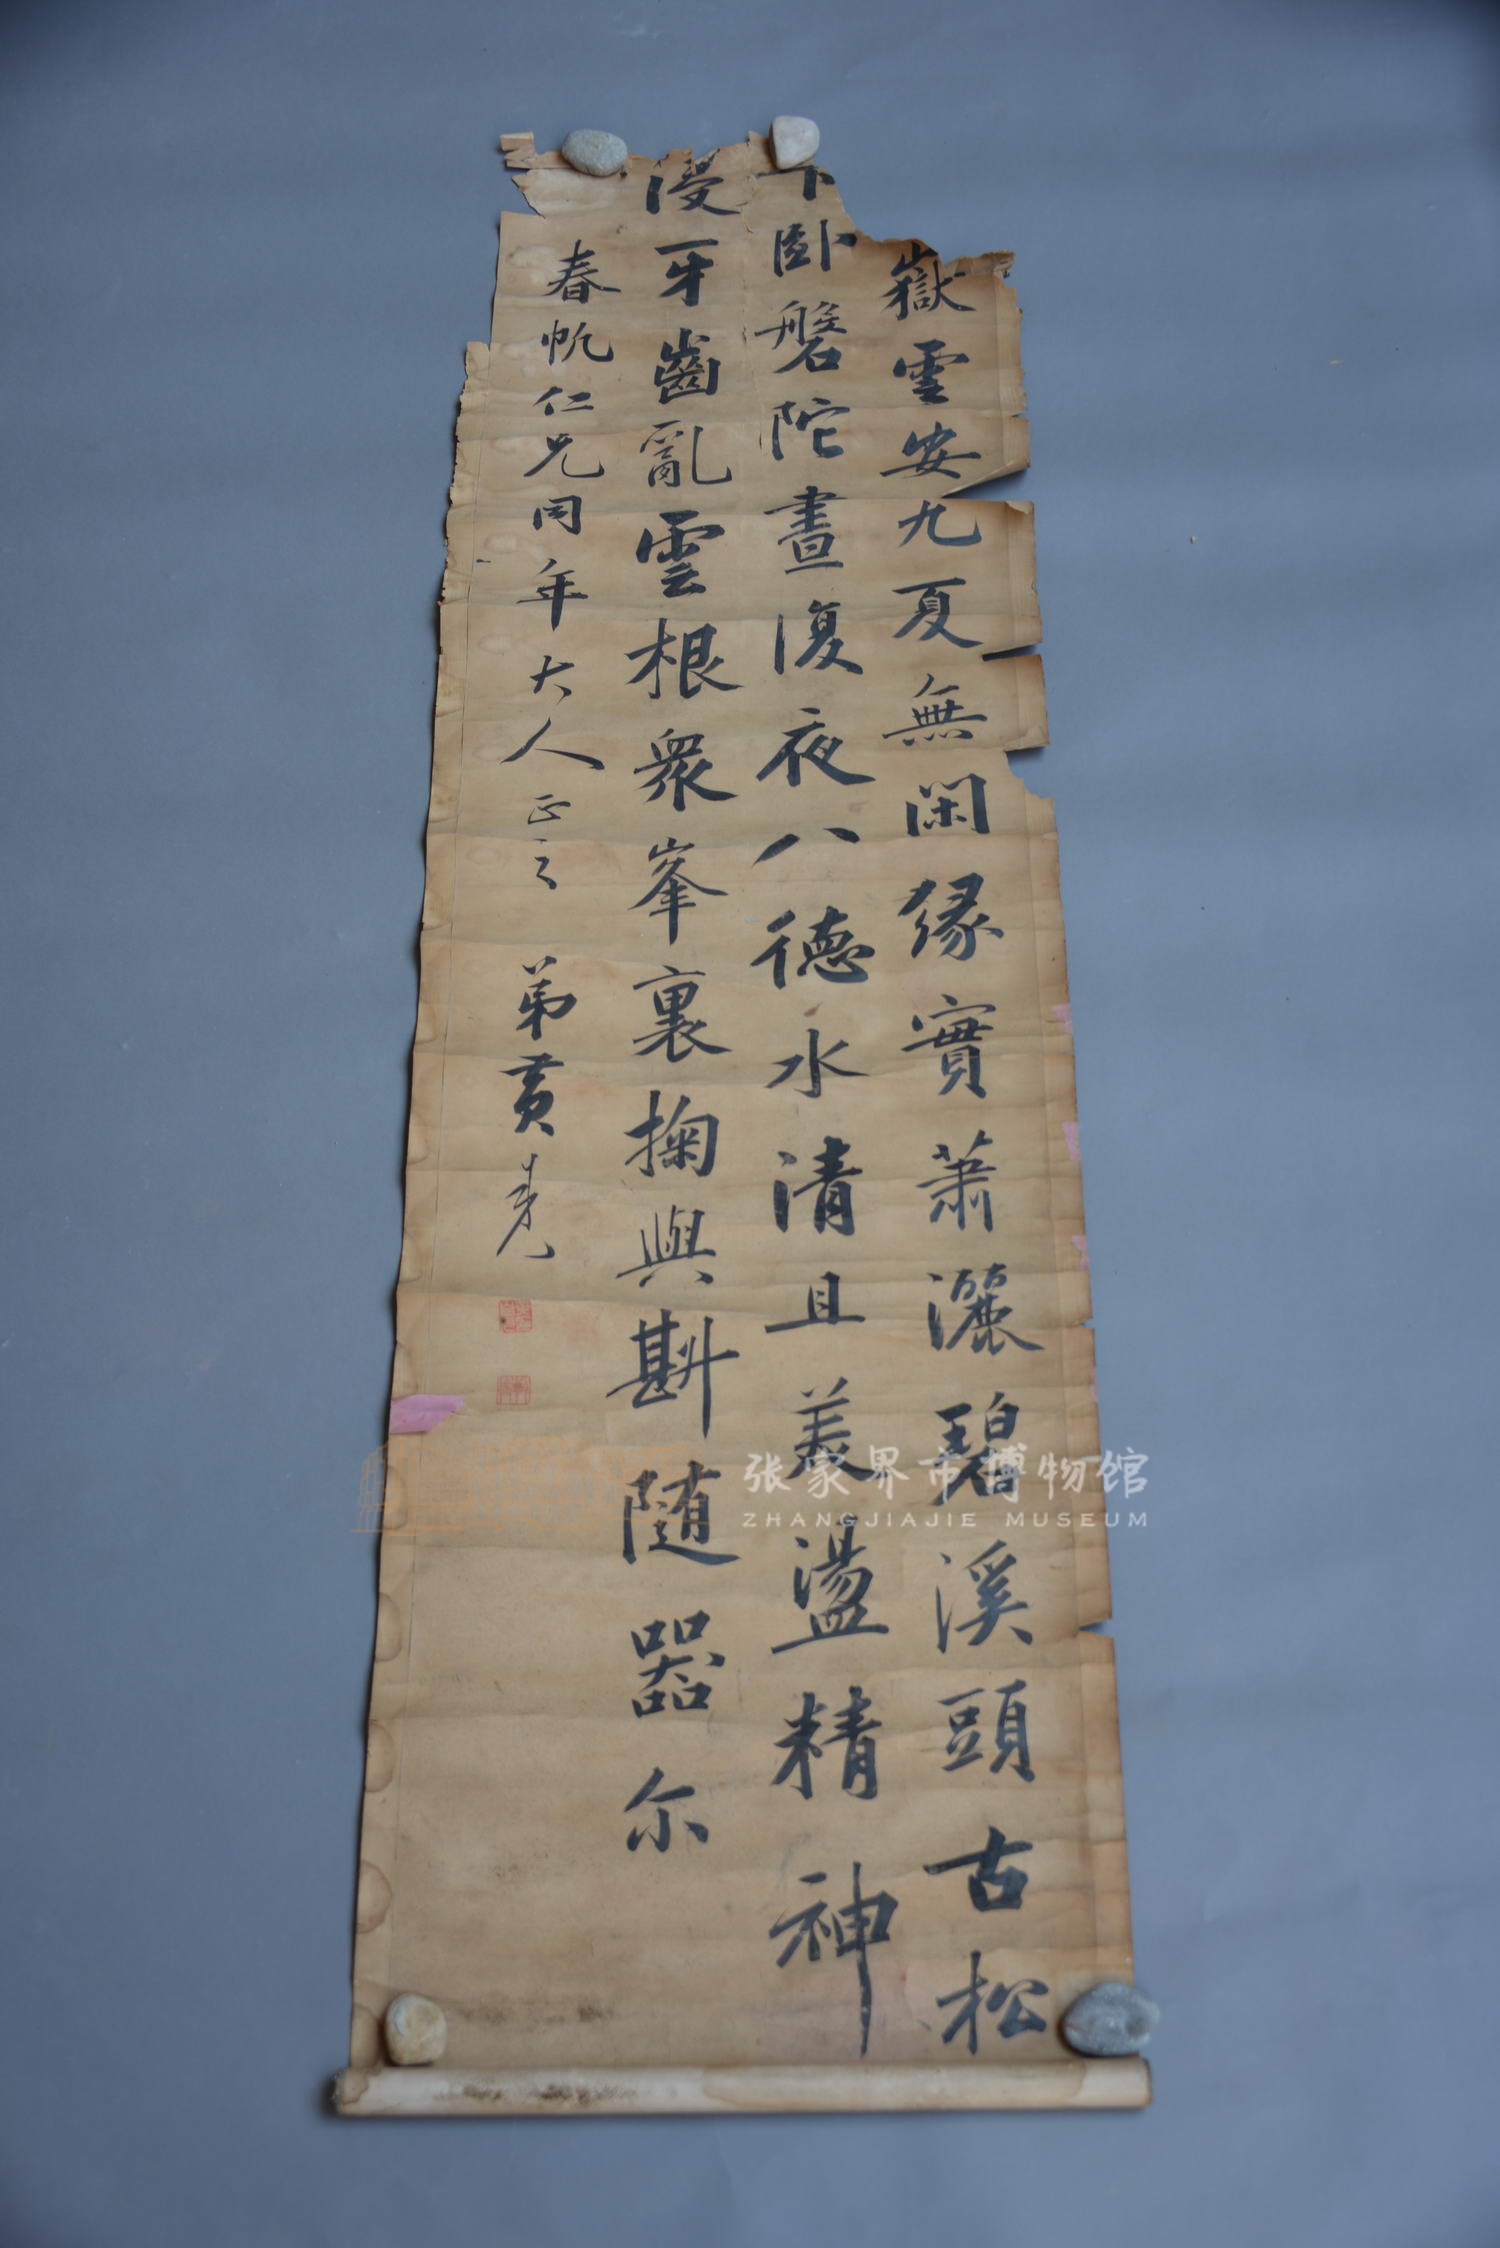 嶽雲安九夏無閑緣實蕭灑碧溪頭古松
下卧磐陀晝復夜八德水清且美盪精神
浸牙齒亂雲根衆峯裏掬與斟隨器尔
春帆仁兄同年大人正之
弟黄
张家界市博物馆
ZHANGJIAJIE MUSEUM